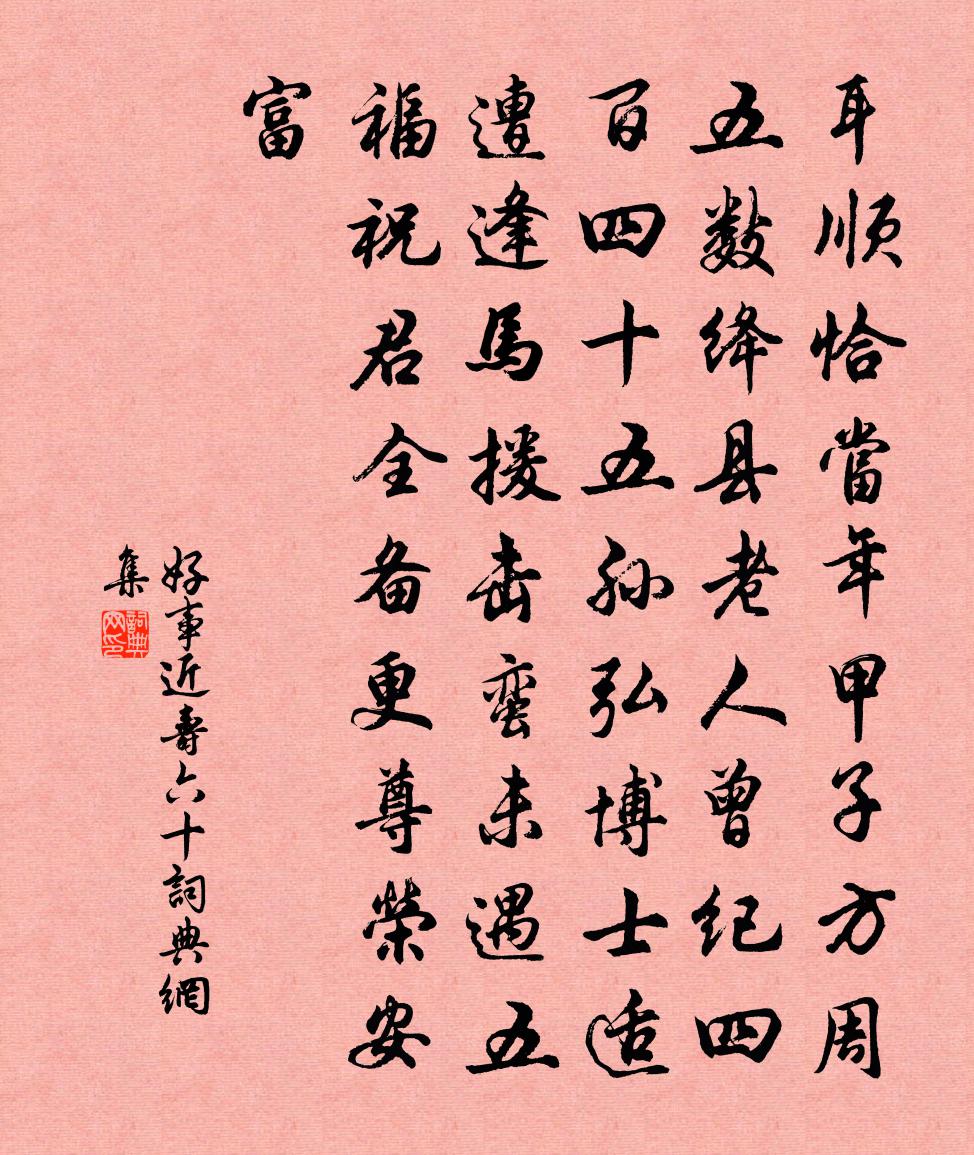 耳順恰當年甲子方周
五數绛县老人曾纪四
百四十五孙弘博士适
遭逢馬援击蛮未遇五
福祝君全备更尊榮安
富
好事近壽六十詞典網
集
詞典
网印